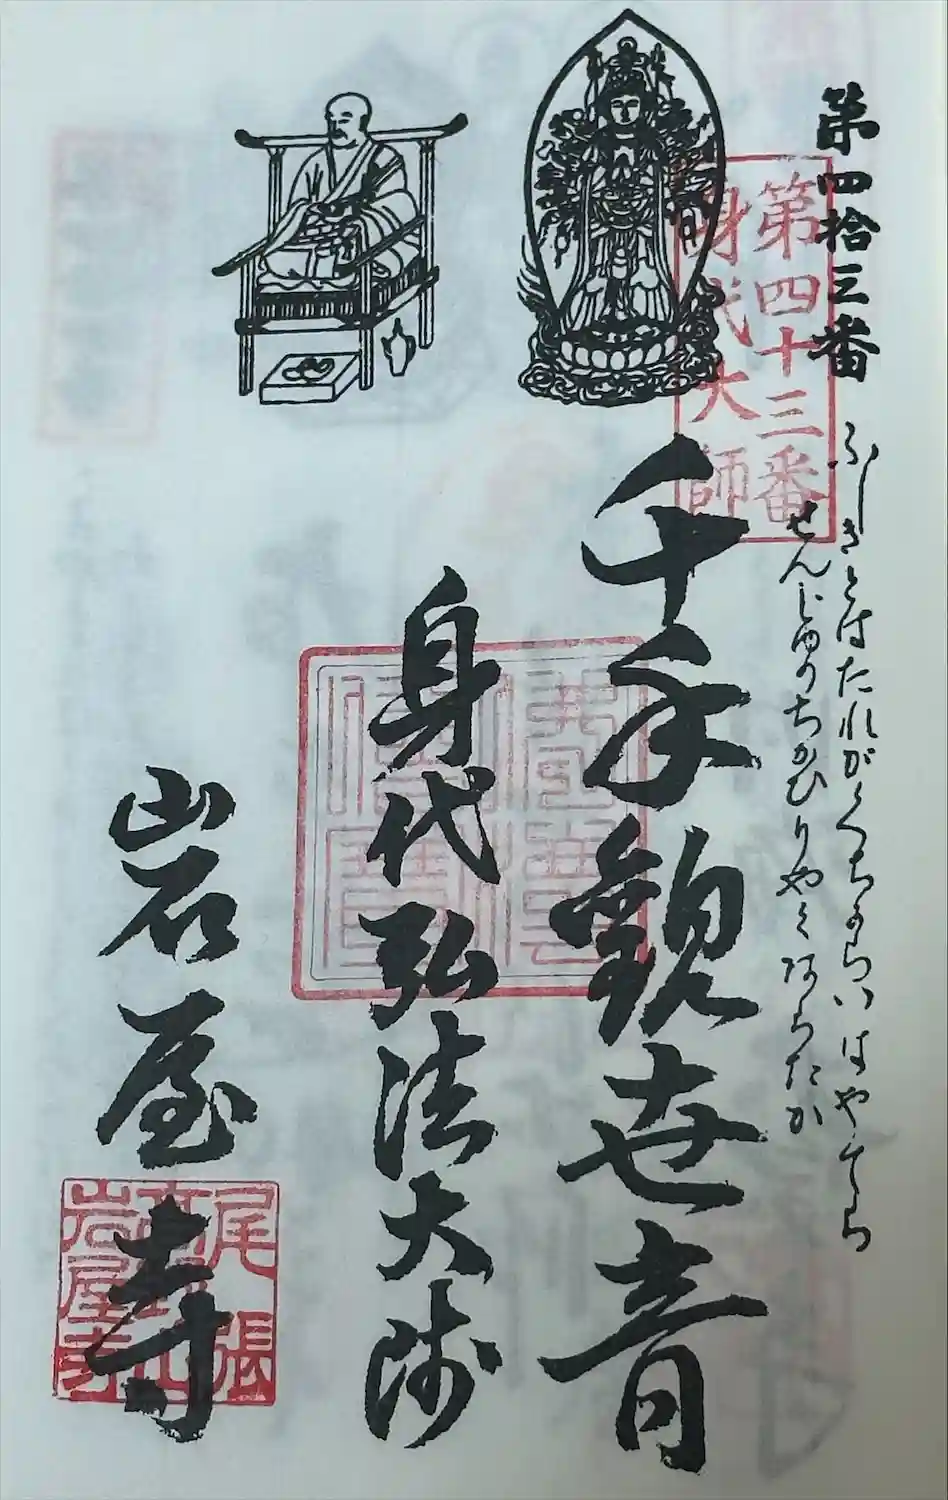 第四拾三番
ふしぎとはたれがくちよりいはやてら
せんじゆのちかひりやくあらたか
第四十三番
身代大師
千手観世音
身代弘法大師
岩屋寺
尾張
岩屋寺